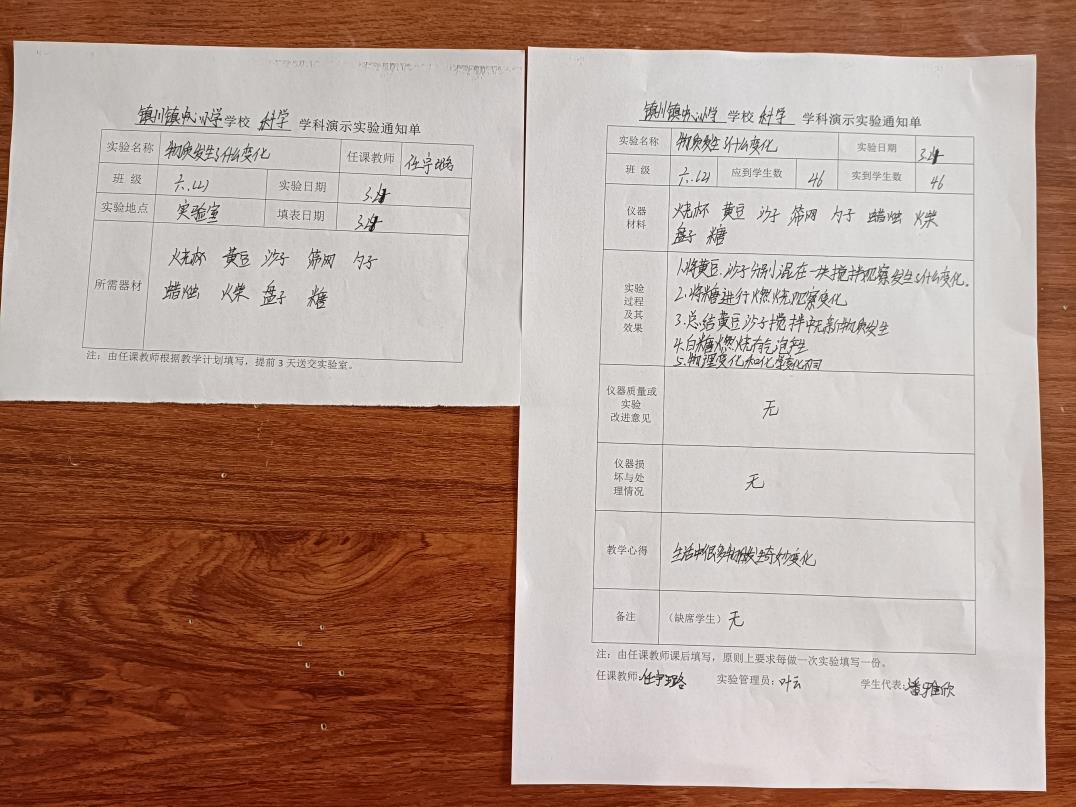 镇川镇中心小学学校 科学 学科演示实验通知单
实验名称 物质发生了什么变化 任课教师 任宇璐
班 级 六.(2) 实验日期
实验地点 实验室 填表日期
所需器材
烧杯 黄豆 沙子 筛网 勺子
蜡烛 火柴 盘子 糖
注：由任课教师根据教学计划填写，提前3天送交实验室。
镇川镇中心小学 学校 科学 学科演示实验通知单
实验名称 物质发生了什么变化 实验日期
班 级 六.(2) 应到学生数 46 实到学生数 46
仪器
材料
烧杯 黄豆 沙子 筛网 勺子 蜡烛 火柴
盘子 糖
实验
过程
及其
效果
1.将黄豆.沙子分别混在一块搅拌观察发生了什么变化。
2.将糖进行燃烧观察变化
3.总结黄豆沙子搅拌中无新物质发生
4.白糖燃烧有气泡产生
5.物理变化和化学变化不同
仪器质量或
实验
改进意见
无
仪器损
坏与处
理情况
无
教学心得
生活中很多物质发生奇妙变化
备注 （缺席学生）无
注：由任课教师课后填写，原则上要求每做一次实验填写一份。
任课教师:任宇璐 实验管理员:叶云 学生代表:潘雅欣